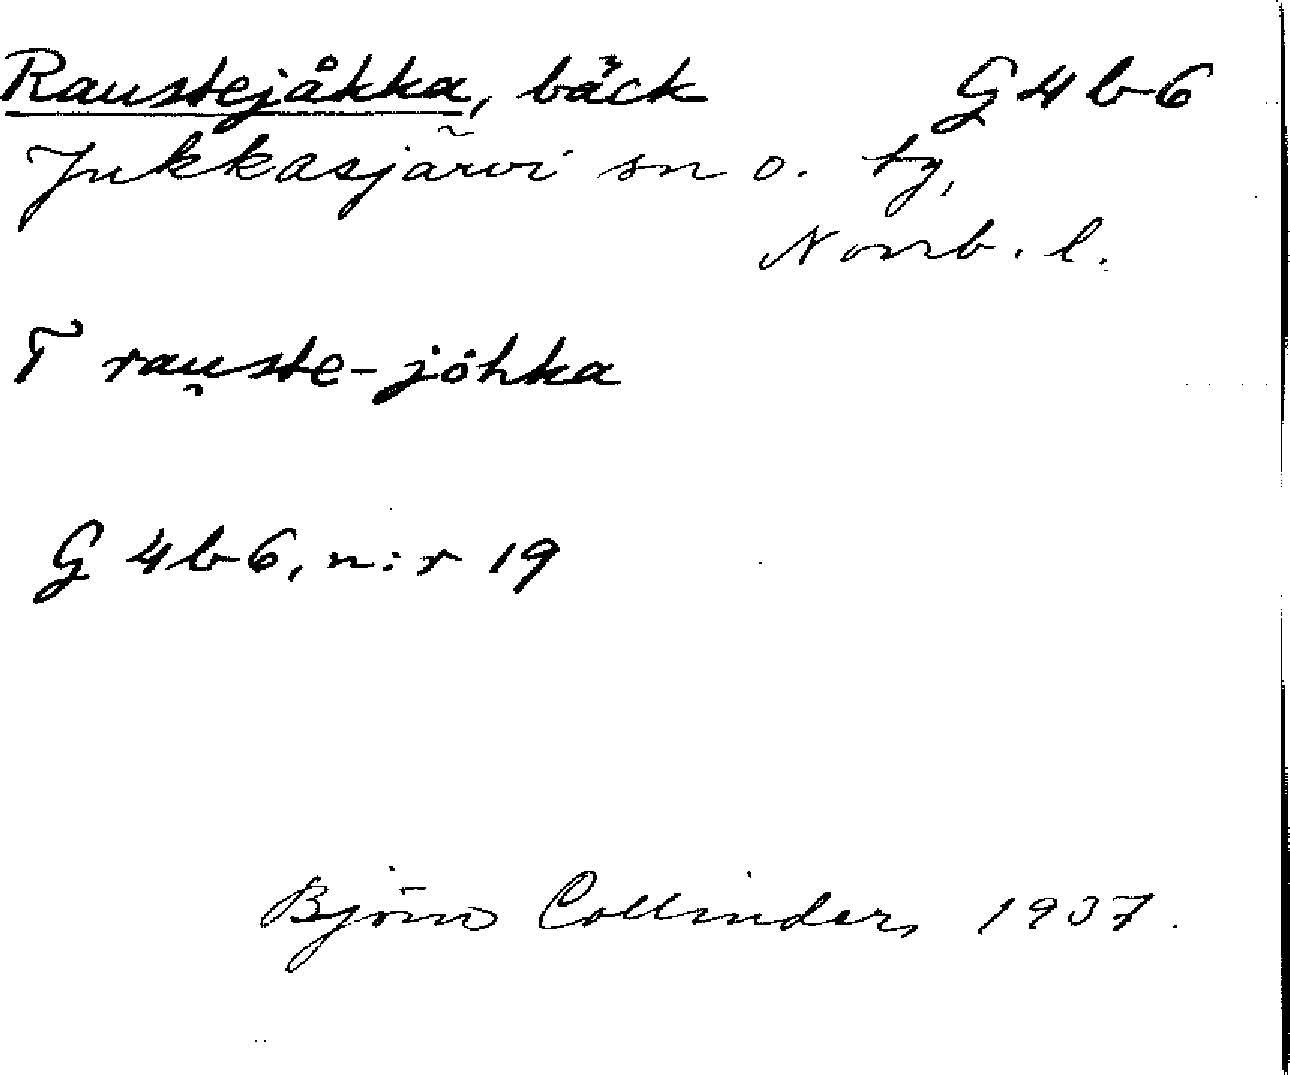 Raustejåkka, bäck G4b6
Jukkasjärvi sn o. tg,
Norrb. l.
T rau̯ste-jȯhka
G 4b6, n:r 19
Björn Collinder, 1937.